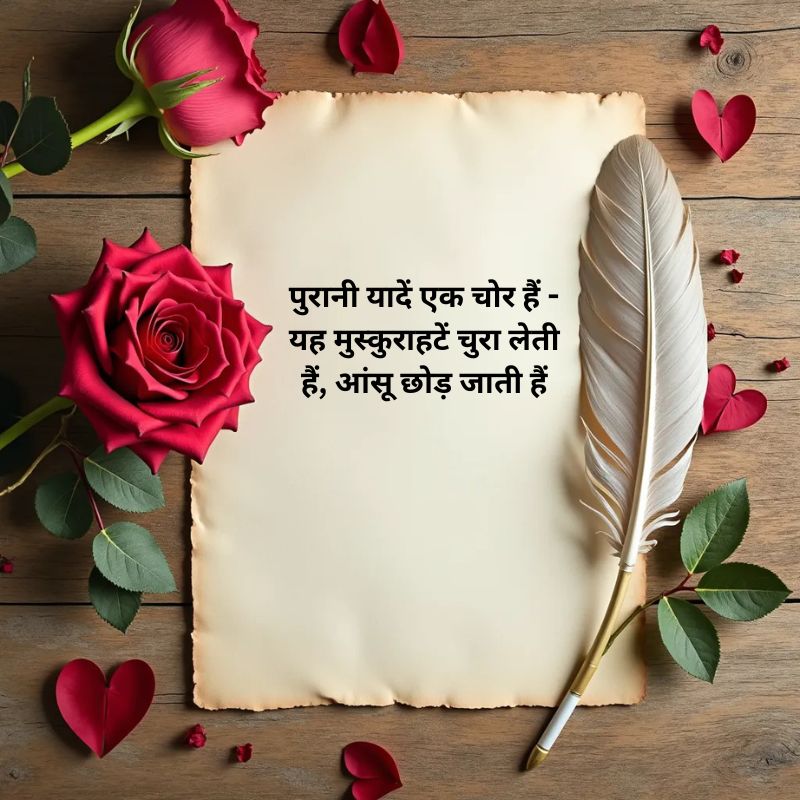 पुरानी यादें एक चोर हैं -
यह मुस्कुराहटें चुरा लेती
हैं, आंसू छोड़ जाती हैं